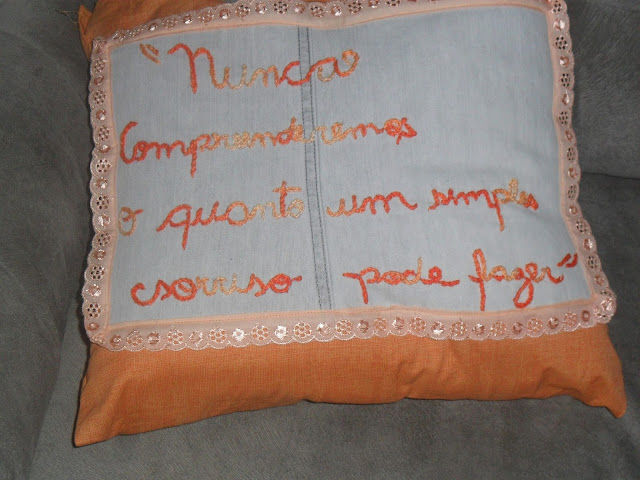 "Nunca
Comprenderemos
o quanto um simples
sorriso pode fazer"